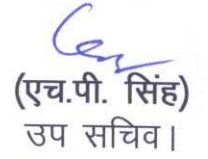 (एच.पी. सिंह)
उप सचिव।